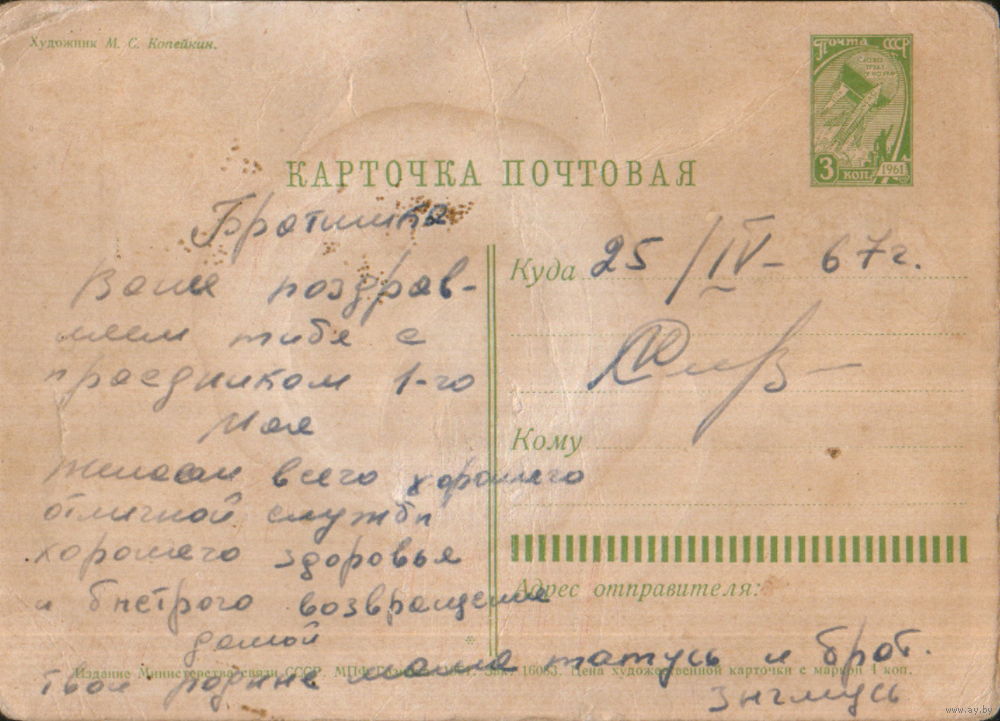 Художник М. С. Копейкин.
Почта СССР
3 коп. 1961
КАРТОЧКА ПОЧТОВАЯ
Братишка
Ваня поздрав-
ляем тибя с
праздником 1-го
Мая
Желаем всего хорошего
отличной службы
хорошего здоровья
и быстрого возвращения
домой
твои родные мама татусь и брат.
Куда 25/IV- 67г.
Кому
Адрес отправителя:
Издание Министерства связи СССР. 16083. Цена художественной карточки с маркой 4 коп.
www.ay.by